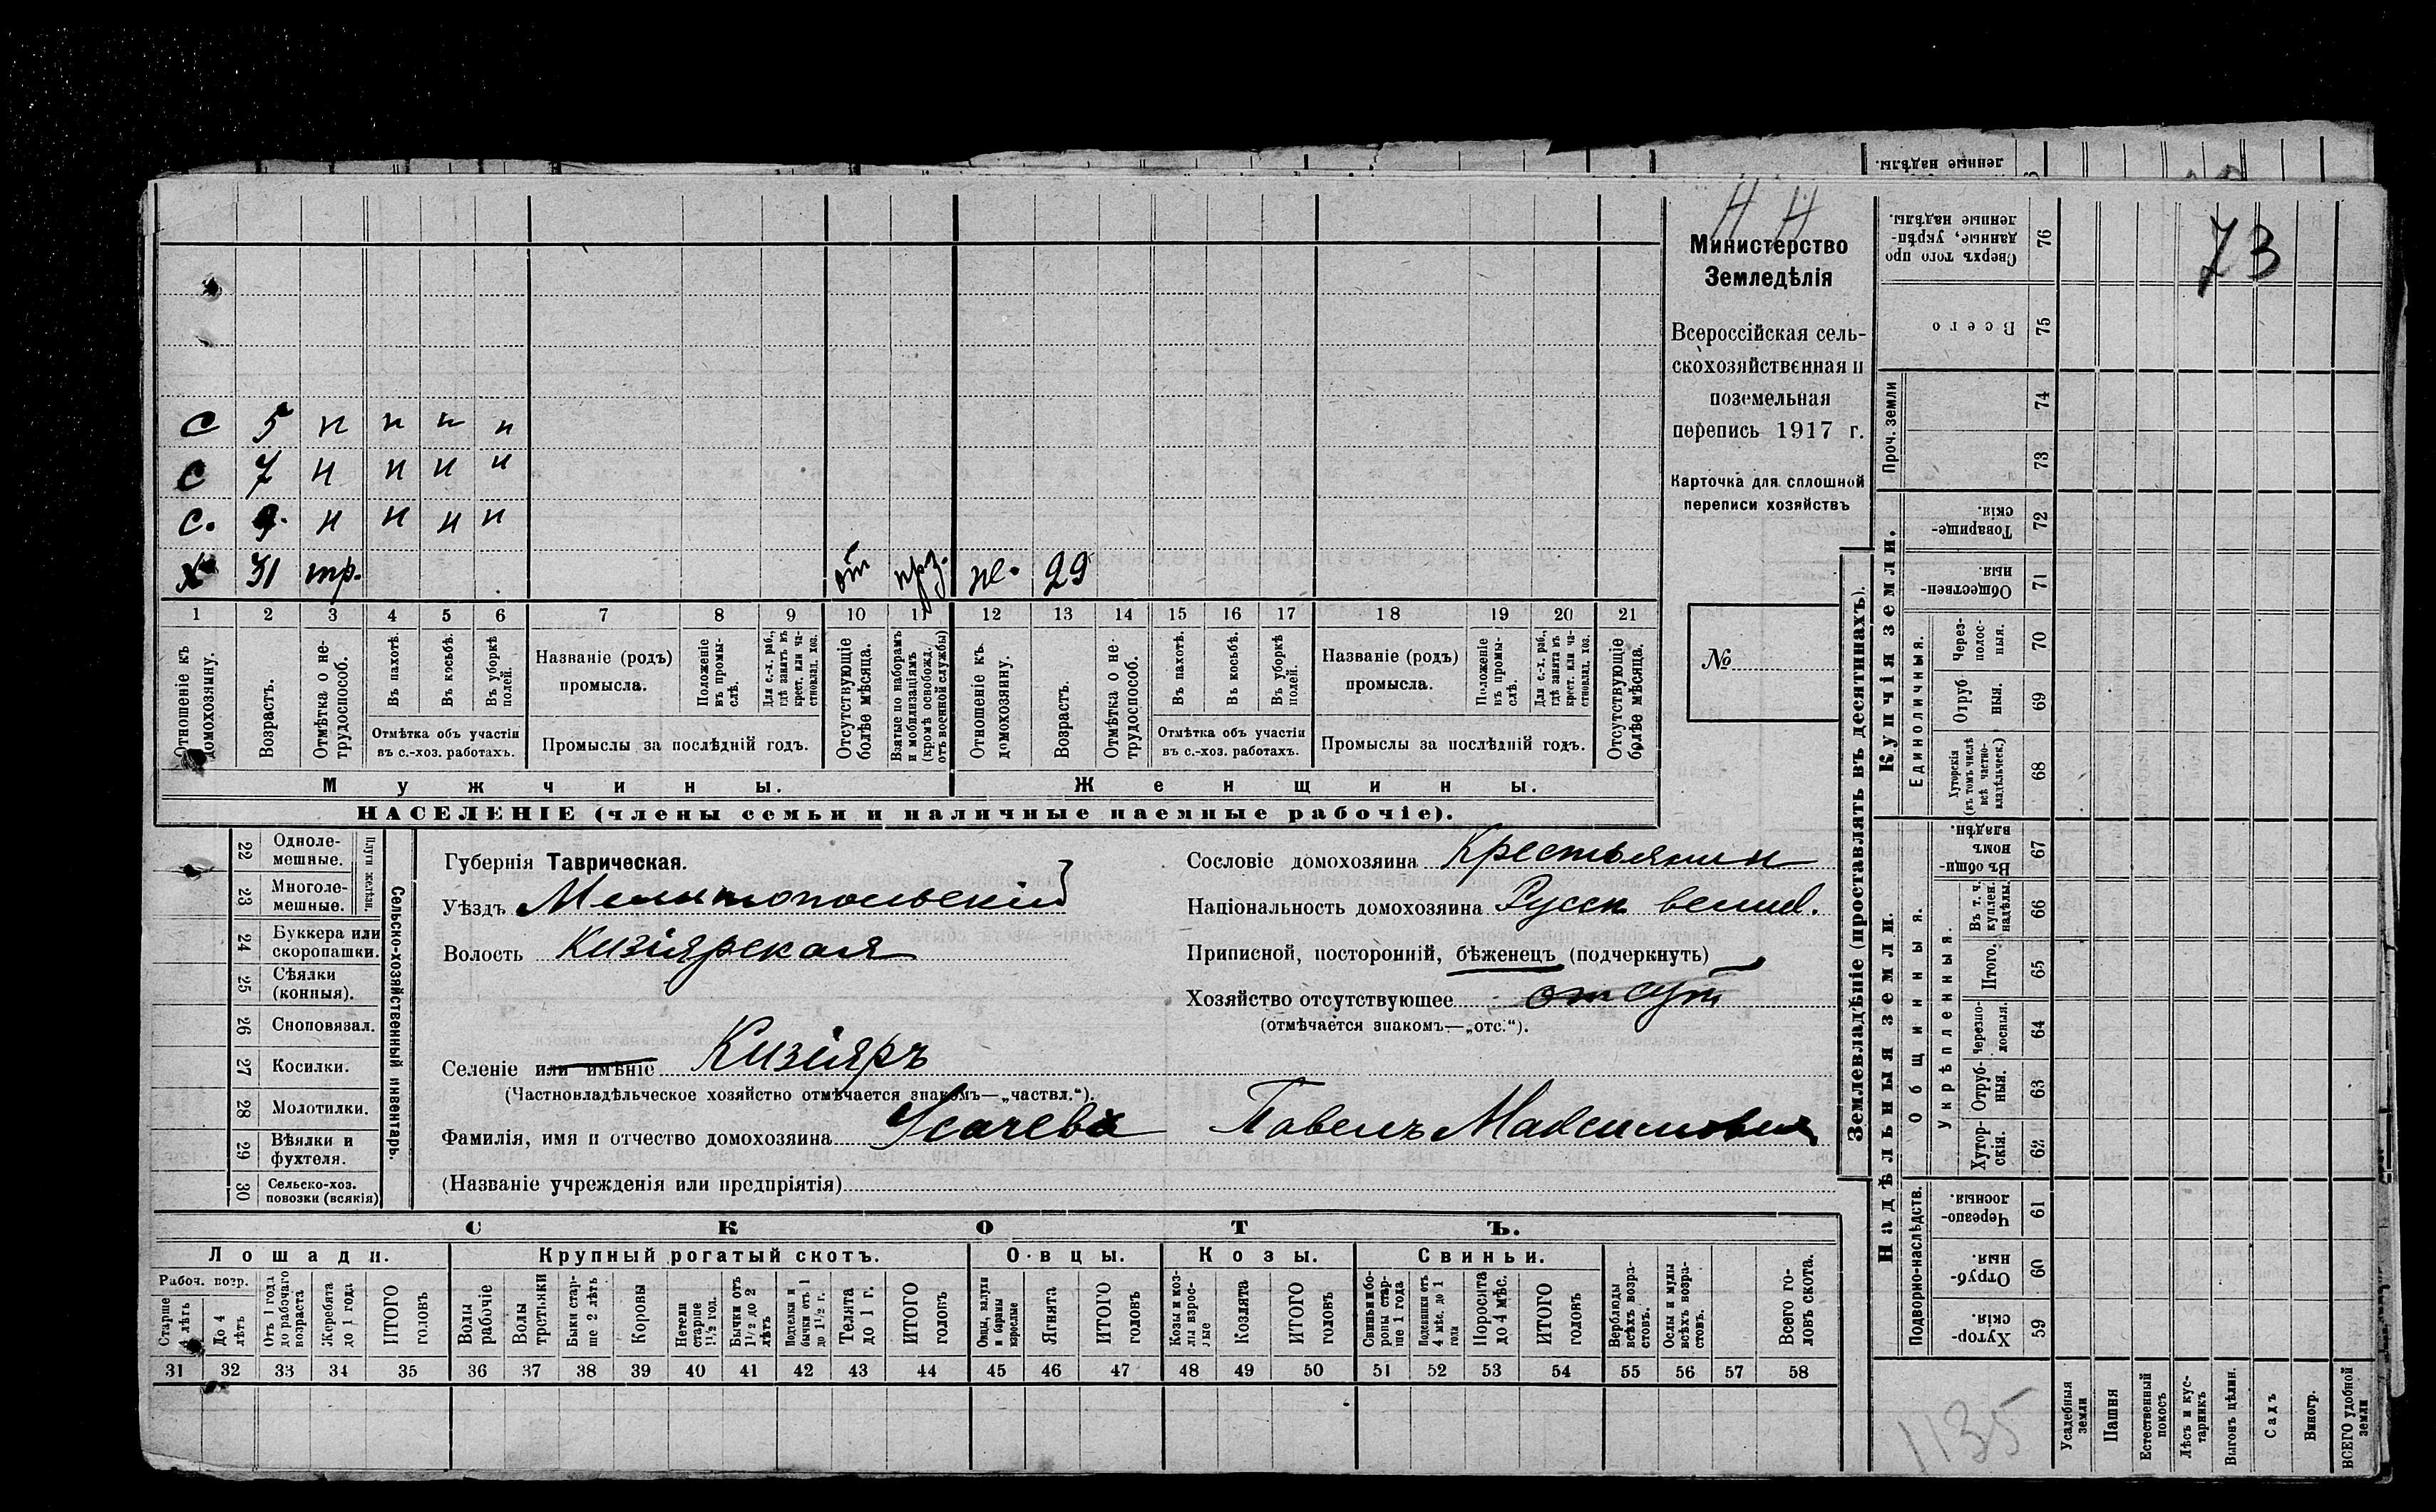 ленные надѣлы.
Н Н
73
Министерство
Земледѣлія
Всероссійская сель-
скохозяйственная и
поземельная
перепись 1917 г.
Карточка для сплошной
переписи хозяйствъ
№
с 5 н н н н
с 7 н н н н
с. 9. н н н н
х 31 тр. от прз. ж. 29
1 2 3 4 5 6 7 8 9 10 11 12 13 14 15 16 17 18 19 20 21
Отношеніе къ домохозяину.
Возрастъ.
Отмѣтка о не-трудоспособ.
Въ пахотѣ.
Въ косьбѣ.
Въ уборкѣ полей.
Отмѣтка объ участіи
въ с.-хоз. работахъ.
Названіе (родъ)
промысла.
Положеніе въ промы-слѣ.
Для с.-х. раб., гдѣ занятъ въ крест. или ча-стновлад. хоз.
Промыслы за послѣдній годъ.
Отсутствующіе болѣе мѣсяца.
Взятые по наборамъ и мобилизаціямъ (кромѣ освобожд. отъ военной службы)
Отношеніе къ домохозяину.
Возрастъ.
Отмѣтка о не трудоспособ.
Въ пахотѣ.
Въ косьбѣ.
Въ уборкѣ полей.
Отмѣтка объ участіи
въ с.-хоз. работахъ.
Названіе (родъ)
промысла.
Положеніе въ промы-слѣ.
Для с.-х. раб., гдѣ занята въ крест. или ча-стновлад. хоз.
Промыслы за послѣдній годъ.
Отсутствующіе болѣе мѣсяца.
Мужчины. Женщины.
НАСЕЛЕНІЕ (члены семьи и наличные наемные рабочіе).
22 Одноле-мешные.
23 Многоле-мешные.
Плуги желѣзн.
24 Буккера или скоропашки.
25 Сѣялки (конныя).
26 Сноповязал.
27 Косилки.
28 Молотилки.
29 Вѣялки и фухтеля.
30 Сельско-хоз. повозки (всякія)
Сельско-хозяйственный инвентарь.
Губернія Таврическая.
Уѣздъ Мелитопольскій
Волость Кизіярская
Сословіе домохозяина Крестьянин
Національность домохозяина Русск велик.
Приписной, посторонній, бѣженецъ (подчеркнуть)
Хозяйство отсутствующее отсут
(отмѣчается знакомъ—„отс.“).
Селеніе или имѣніе Кизіяръ
(Частновладѣльческое хозяйство отмѣчается знакомъ—„частвл.“).
Фамилія, имя и отчество домохозяина Усачевъ Павелъ Максимович
(Названіе учрежденія или предпріятія)
СКОТЪ.
Лошади. Крупный рогатый скотъ. Овцы. Козы. Свиньи.
Рабоч. возр.
Старше 4 лѣтъ
До 4 лѣтъ
Отъ 1 года до рабочаго возраста
Жеребята до 1 года
ИТОГО головъ
Волы рабочіе
Волы третьяки
Быки стар-ше 2 лѣтъ
Коровы
Нетели старше 1½ год.
Бычки отъ 1½ до 2 лѣтъ
Подтелки и бычки отъ 1 до 1½ г.
Телята до 1 г.
ИТОГО головъ
Овцы, валухи и бараны взрослые
Ягнята
ИТОГО головъ
Козы и коз-лы взрос-лые
Козлята
ИТОГО головъ
Свиньи и бо-ровы стар-ше 1 года
Подсвинки отъ 4 мѣс. до 1 года
Поросята до 4 мѣс.
ИТОГО головъ
Верблюды всѣхъ возра-стовъ.
Ослы и мулы всѣхъ возра-стовъ.
Всего го-ловъ скота.
31 32 33 34 35 36 37 38 39 40 41 42 43 44 45 46 47 48 49 50 51 52 53 54 55 56 57 58
Землевладѣніе (проставлять въ десятинахъ).
Купчія земли.
Сверхъ того про данные, укрѣп-ленные надѣлы. 76
Всего 75
Проч. земли 74
73
Товарище-скія. 72
Обществен-ныя 71
Единоличныя.
Через-полос-ныя. 70
Отруб ныя. 69
Хуторскія (въ томъ числѣ всѣ частно-владѣльческ.) 68
Надѣльныя земли.
Общинныя.
Въ общи номъ владѣн. 67
Въ т. ч. куплен. надѣлы. 66
Укрѣпленныя.
Итого. 65
Черезпо-лосныя. 64
Отруб-ныя. 63
Хутор-скія. 62
Подворно-наслѣдств.
Черезпо-лосныя. 61
Отруб-ныя. 60
Хутор-скія. 59
1135
Усадебныя земли
Пашня
Естественный покосъ
Лѣсъ и кус-тарникъ
Выгонъ цѣлин.
Садъ
Виногр.
ВСЕГО удобной земли